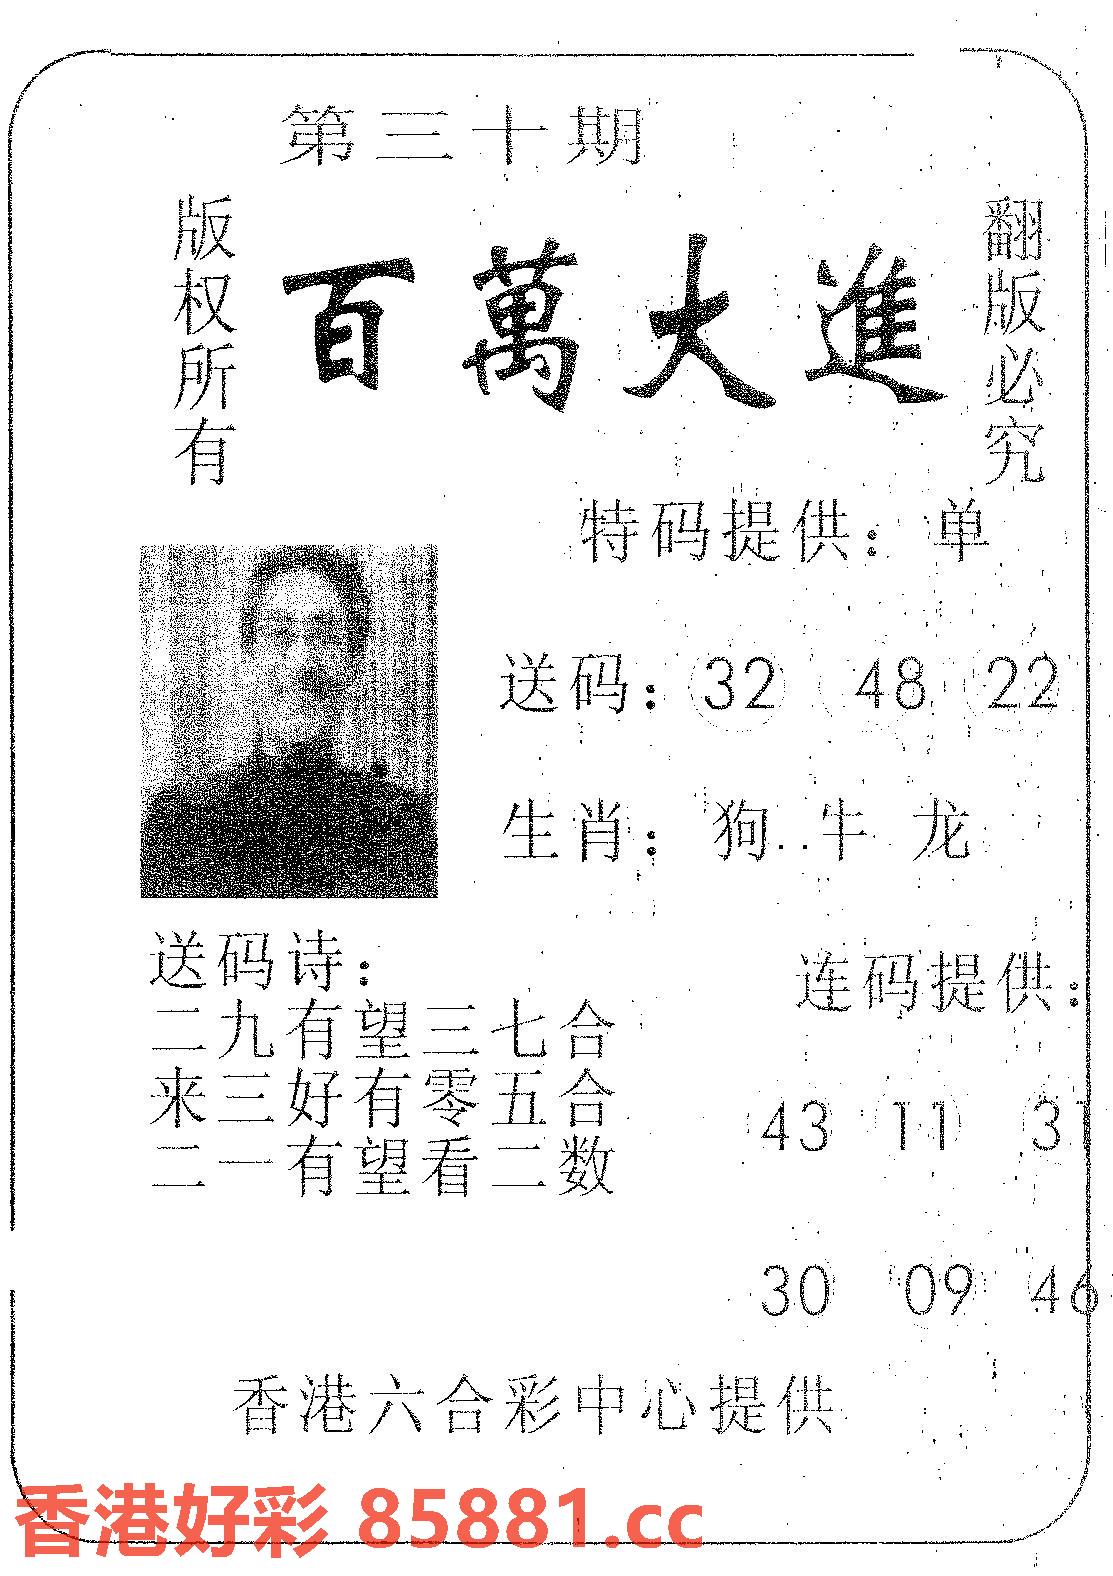 第三十期
版权所有
百萬大進
翻版必究
特码提供：单
送码：32 48 22
生肖：狗..牛 龙
送码诗：
二九有望三七合
来三好有零五合
二一有望看二数
连码提供：
43 11 31
30 09 46
香港六合彩中心提供
香港好彩 85881.cc